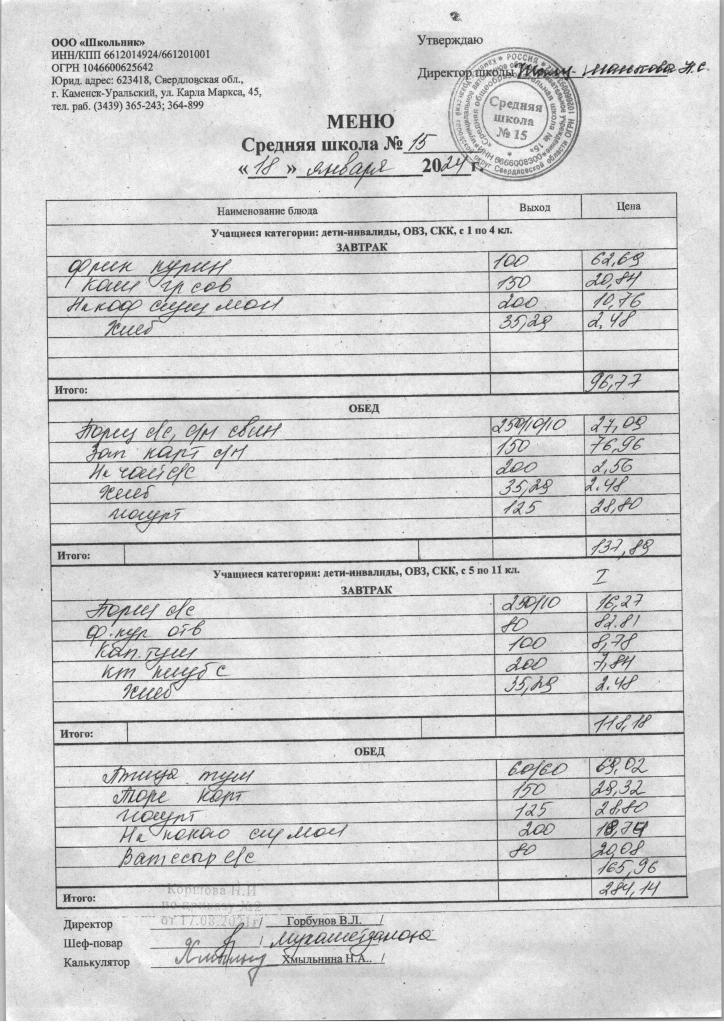 ООО «Школьник»
ИНН/КПП 6612014924/661201001
ОГРН 1046600625642
Юрид. адрес: 623418, Свердловская обл.,
г. Каменск-Уральский, ул. Карла Маркса, 45,
тел. раб. (3439) 365-243; 364-899
Утверждаю
Директор школы
Средняя
школа
№ 15
МЕНЮ
Средняя школа № 15
« 18 » января 2024 г.
Наименование блюда Выход Цена
Учащиеся категории: дети-инвалиды, ОВЗ, СКК, с 1 по 4 кл.
ЗАВТРАК
фрик курин 100 62,69
Каш гр сов 150 20,84
Нк коф сгущ мол 200 10,76
Хлеб 35,29 2.48
Итого: 96,77
ОБЕД
Борщ с/с, с/м свин 250/10/10 27,09
Зап карт с/м 150 76,96
Нк чай с/с 200 2,56
Хлеб 35,29 2.48
йогурт 125 28,80
Итого: 137,89
Учащиеся категории: дети-инвалиды, ОВЗ, СКК, с 5 по 11 кл. I
ЗАВТРАК
Борщ с/с 250/10 16,27
ф.кур отв 80 82.81
Кап.туш 100 8,78
кт клуб с 200 7,84
Хлеб 35,29 2.48
118,18
Итого:
ОБЕД
Птица туш 60/60 69,02
Пюре карт 150 29,32
йогурт 125 28,80
Нк какао сгу мол 200 18,74
Ват сыр с/с 80 20,08
165,96
Итого: 284,14
Корлова Н.И
от 17.03.2021г
Директор / Горбунов В.Л. /
Шеф-повар /
Калькулятор Хмыльнина Н.А.. /